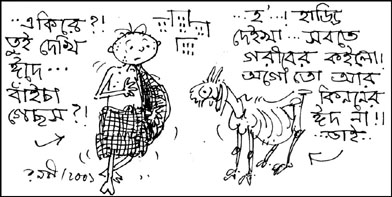 একিরে ?!
তুই দেখি
ঈদে ...
বাঁইচা
গেছস ?!
... হ' ...! হাড্ডি
দেইখা ... সবতে
গরীবের কইলো !!
অগো তো আর
ঈদ না !!
... তাই ..
/২০০১